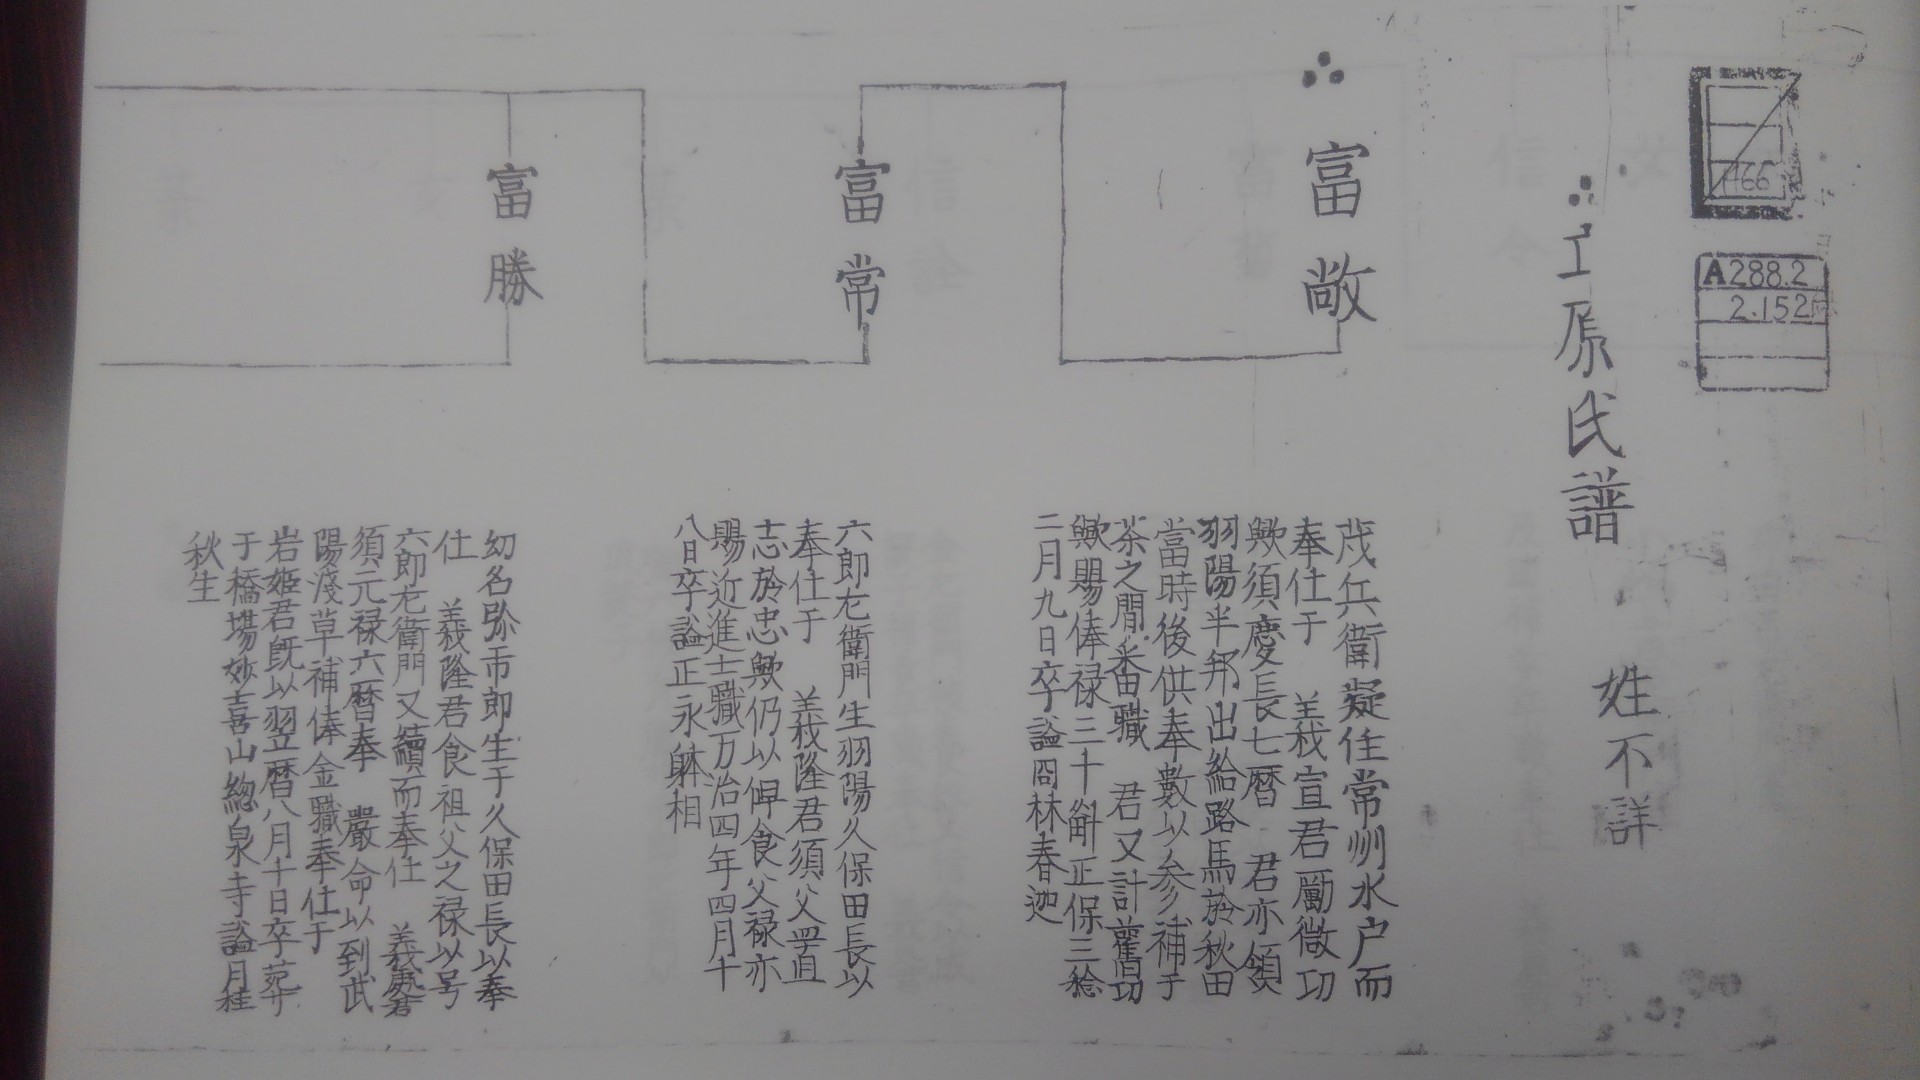 466
A288.2
2.152
工原氏譜 姓不詳
富敞
茂兵衛疑住常州水户而
奉仕于 義宣君勵微功
歟須慶長七暦 君亦領
羽陽半邦出給路馬於秋田
當時後供奉數以参補于
茶之間番職 君又計舊功
歟賜俸禄三十斛正保三稔
二月九日卒謚岡林春迎
富常
六郎左衛門生羽陽久保田長以
奉仕于 義隆君須父罡直
志於忠歟仍以俾食父禄亦
賜近進士職万治四年四月十
八日卒謚正永躰相
富勝
幼名弥市郎生于久保田長以奉
仕 義隆君食祖父之禄以号
六郎左衛門又續而奉仕 義處君
須元禄六暦奉 嚴命以到武
陽淺草補俸金職奉仕于
岩姫君既以翌暦八月十日卒葬
于橋場妙喜山總泉寺謚月桂
秋生